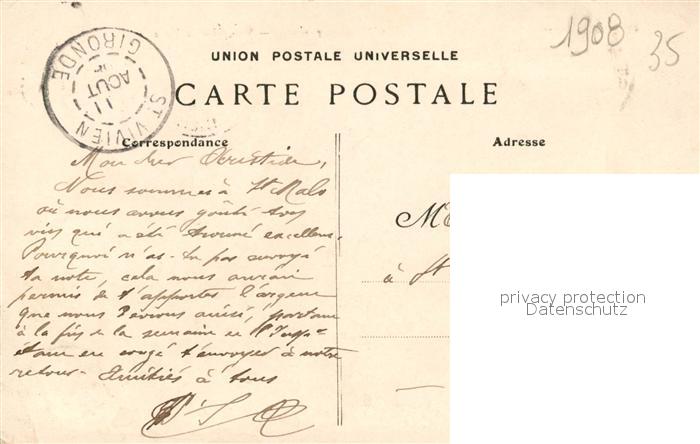 1908
35
UNION POSTALE UNIVERSELLE
CARTE POSTALE
ST VIVIEN
GIRONDE
11
AOUT
08
Correspondance
Adresse
Mon cher Aristide,
Nous sommes à St Malo
où nous avons goûté tes
vins qui a été trouvé excellent.
Pourquoi n'as-tu pas envoyé
ta note, cela nous aurait
permis de t'apporter l'argent
que nous devions ainsi,
à la fin de la semaine et
étant en congé t'envoyer à notre
retour - Amitiés à tous
M
à St
privacy protection
Datenschutz